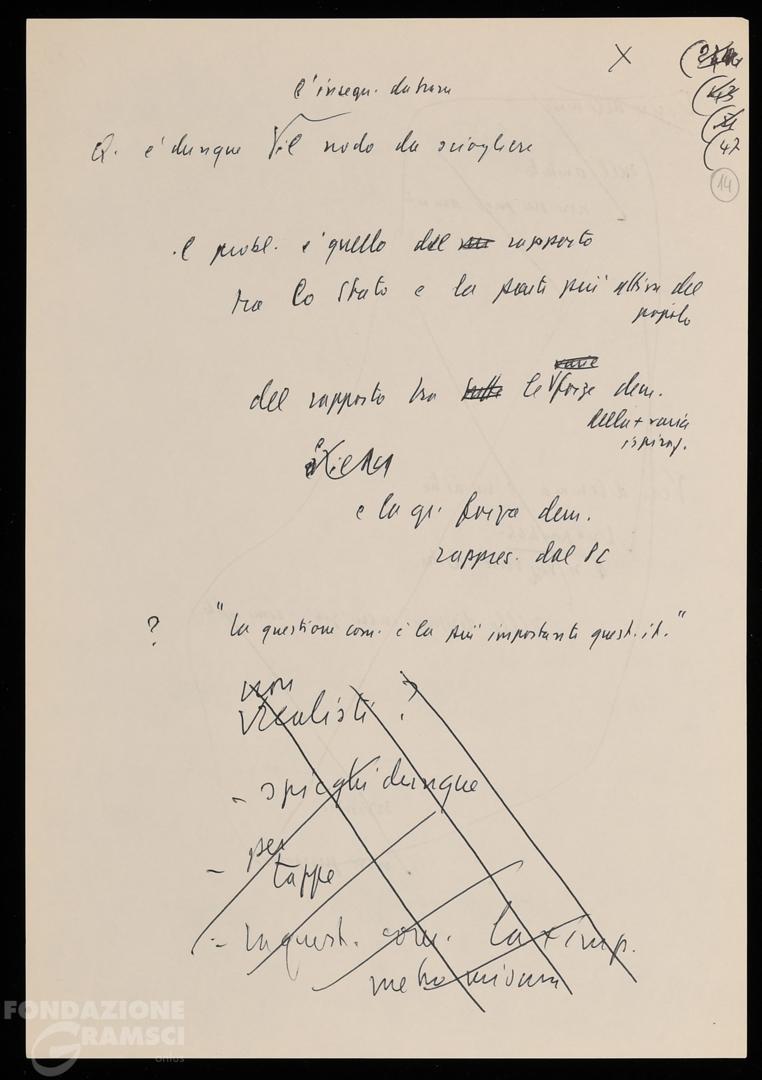 X
43
21
47
14
Q. è dunque il nodo da sciogliere
il probl. è quello del rapporto
tra lo Stato e la parte più attiva del
popolo
del rapporto tra le forze dem.
varie
della + varia
ispiraz.
e la gr. forza dem.
rappres. dal PC
? "la questione com. è la più importante quest. it."
non
realisti ?
- spieghi dunque
per
- tappe
- la quest. com. la + imp.
metro misura
FONDAZIONE
GRAMSCI
onlus